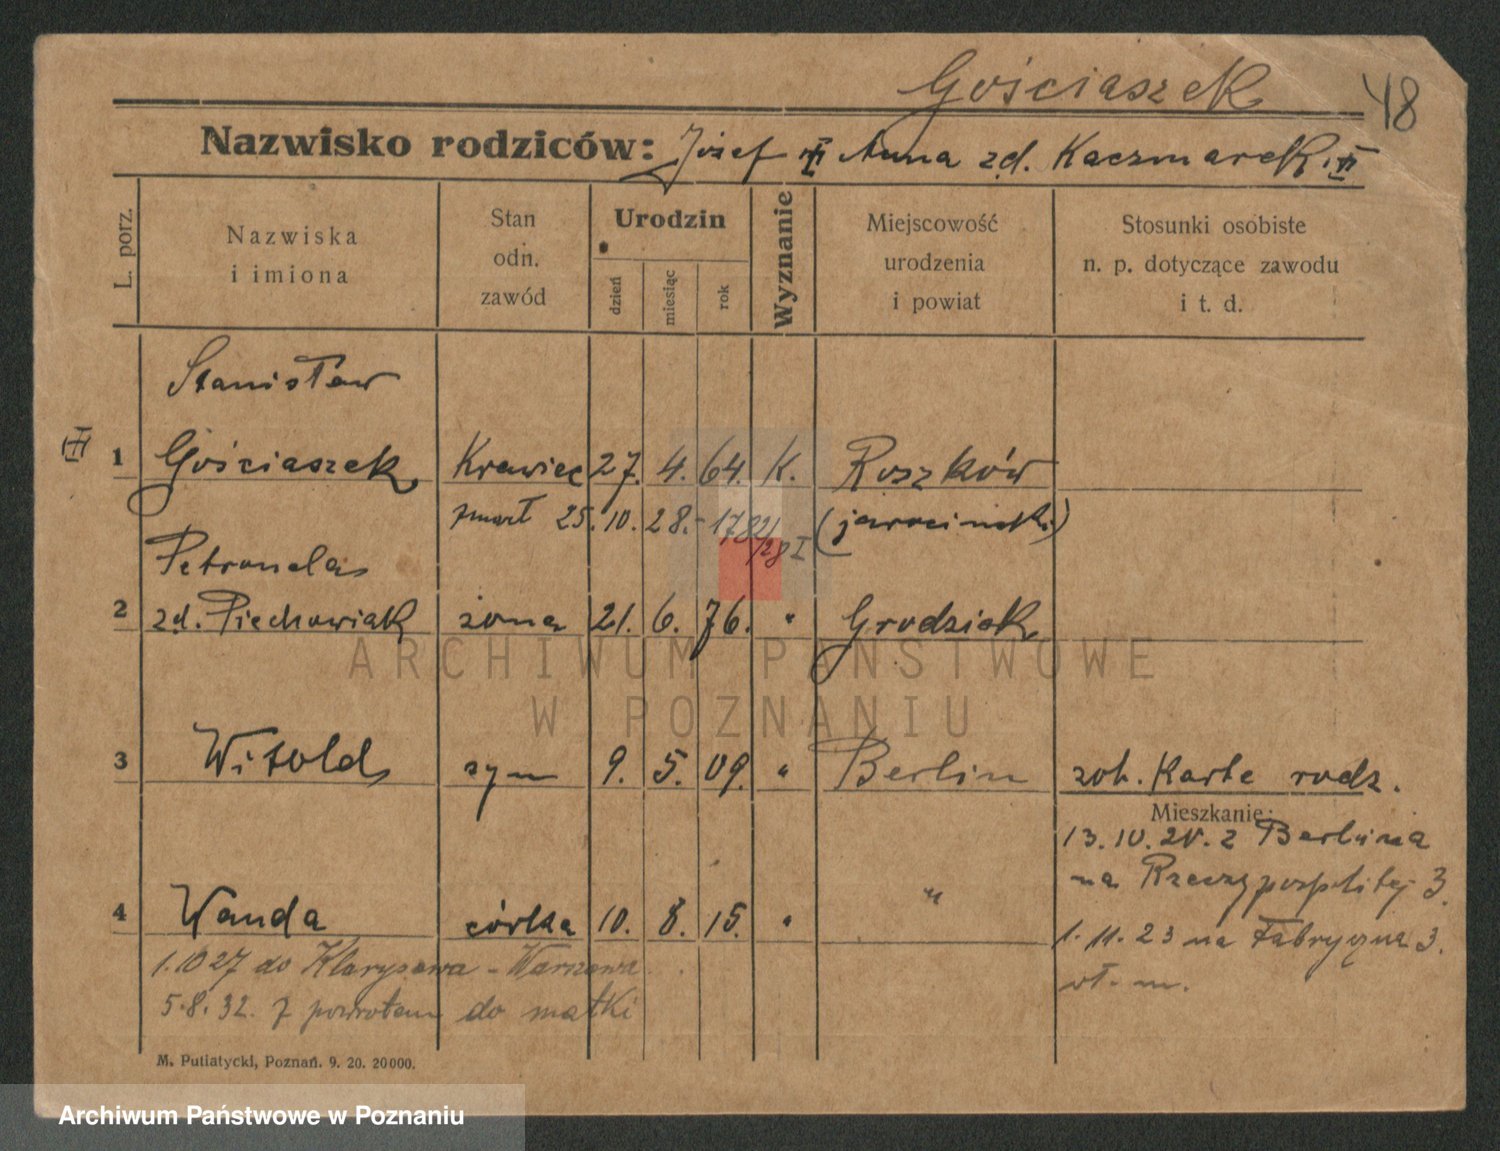 Gościaszek
48
Nazwisko rodziców: Józef Anna zd. Kaczmarek
L. porz.
Nazwiska
i imiona
Stan
odn.
zawód
Urodzin
dzień
miesiąc
rok
Wyznanie
Miejscowość
urodzenia
i powiat
Stosunki osobiste
n. p. dotyczące zawodu
i t. d.
Stanisław
1 Gościaszek Krawiec 27. 4. 64. K. Roszków
zmarł 25.10.28.- 1782/28 I (jarociński)
Petronela
2 zd. Piechowiak żona 21. 6. 76. " Grodzisk
ARCHIWUM PAŃSTWOWE
W POZNANIU
3 Witold syn 9. 5. 09. " Berlin zob. Karte rodz.
Mieszkanie:
13.10.21. z Berlina
na Rzeczypospolitej 3.
4 Wanda córka 10. 8. 15. " "
1.11.23 na Fabryczna 3.
1.10 27 do Klarysewa - Warszawa
5.8.32. z powrotem do matki
M. Putiatycki, Poznań. 9. 20. 20000.
Archiwum Państwowe w Poznaniu